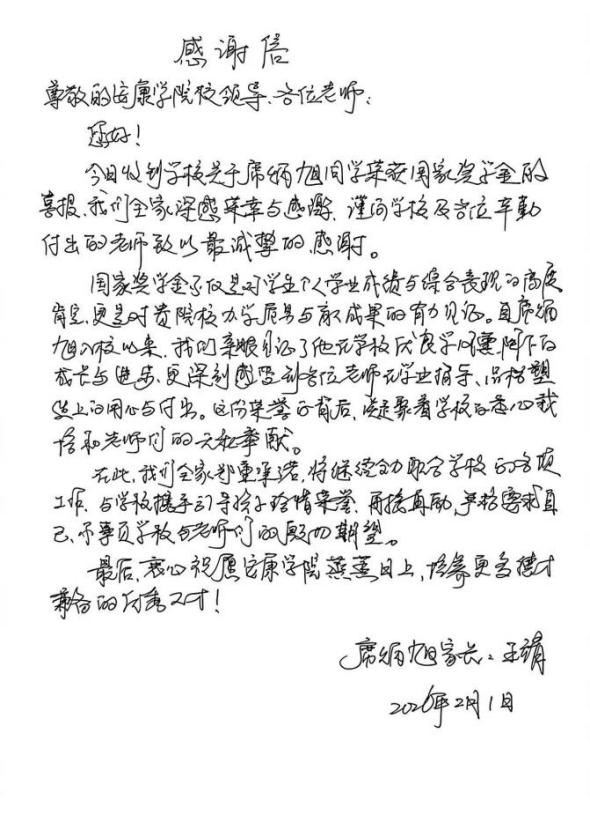 感谢信
尊敬的安康学院校领导、各位老师：
您好！
今日收到学校关于席炳旭同学荣获国家奖学金的
喜报，我们全家深感荣幸与感激，谨向学校及各位辛勤
付出的老师致以最诚挚的感谢。
国家奖学金不仅是对学生个人学业成绩与综合表现的高度
肯定，更是对贵院校办学质量与育人成果的有力见证。自席炳
旭入校以来，我们亲眼见证了他在学校优良学风熏陶下的
成长与进步，更深刻感受到各位老师在学业指导、品格塑
造上的用心与付出。这份荣誉的背后，凝聚着学校的悉心栽
培和老师们的无私奉献。
在此，我们全家郑重承诺，将继续全力配合学校的各项
工作，与学校携手引导孩子珍惜荣誉、再接再励，严格要求自
己，不辜负学校与老师们的殷切期望。
最后，衷心祝愿安康学院蒸蒸日上，培养更多德才
兼备的优秀人才！
席炳旭家长：王娟
2026年2月1日